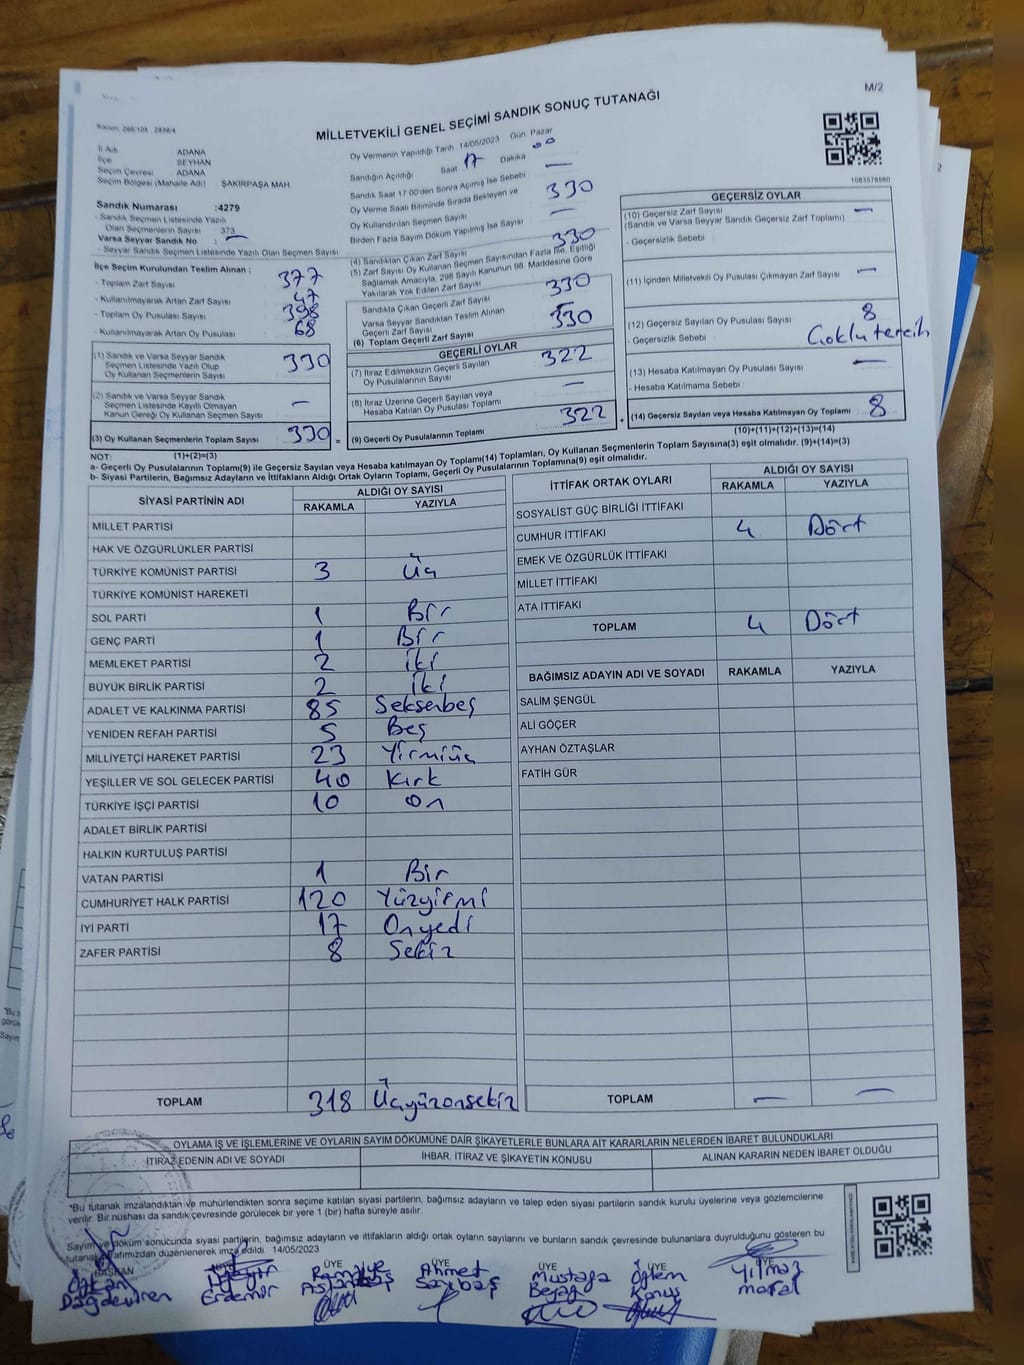 M/2
MİLLETVEKİLİ GENEL SEÇİMİ SANDIK SONUÇ TUTANAĞI
İl Adı : ADANA
İlçe : SEYHAN
Seçim Çevresi : ADANA
Seçim Bölgesi (Mahalle Adı) : ŞAKİRPAŞA MAH
Sandık Numarası :4279
- Sandık Seçmen Listesinde Yazılı
Olan Seçmenlerin Sayısı : 373
Varsa Seyyar Sandık No : —
- Seyyar Sandık Seçmen Listesinde Yazılı Olan Seçmen Sayısı
İlçe Seçim Kurulundan Teslim Alınan ;
- Toplam Zarf Sayısı : 377
- Kullanılmayarak Artan Zarf Sayısı : 47
- Toplam Oy Pusulası : 398
- Kullanılmayarak Artan Oy Pusulası : 68
(1) Sandık ve Varsa Seyyar Sandık
Seçmen Listesinde Yazılı Olup
Oy Kullanan Seçmenlerin Sayısı 330
(2) Sandık ve Varsa Seyyar Sandık
Seçmen Listesinde Kayıtlı Olmayan
Kanun Gereği Oy Kullanan Seçmen Sayısı —
(3) Oy Kullanan Seçmenlerin Toplam Sayısı 330 =
(1)+(2)=(3)
Oy Vermenin Yapıldığı Tarih 14/05/2023 Gün Pazar
Sandığın Açıldığı Saat 17 Dakika 00
Sandık Saat 17.00'den Sonra Açılmış İse Sebebi —
Oy Verme Saati Bitiminde Sırada Bekleyen ve
Oy Kullandırılan Seçmen Sayısı 330
Birden Fazla Sayım Döküm Yapılmış İse Sayısı —
(4) Sandıktan Çıkan Zarf Sayısı 330
(5) Zarf Sayısı Oy Kullanan Seçmen Sayısından Fazla İse, Eşitliği
Sağlamak Amacıyla, 298 Sayılı Kanunun 98. Maddesine Göre
Yakılarak Yok Edilen Zarf Sayısı
Sandıkta Çıkan Geçerli Zarf Sayısı 330
Varsa Seyyar Sandıktan Teslim Alınan
Geçerli Zarf Sayısı
(6) Toplam Geçerli Zarf Sayısı 330
GEÇERLİ OYLAR
(7) İtiraz Edilmeksizin Geçerli Sayılan
Oy Pusulalarının Sayısı 322
(8) İtiraz Üzerine Geçerli Sayılan veya
Hesaba Katılan Oy Pusulası Toplamı —
(9) Geçerli Oy Pusulalarının Toplamı 322 +
1083578560
GEÇERSİZ OYLAR
(10) Geçersiz Zarf Sayısı —
(Sandık ve Varsa Seyyar Sandık Geçersiz Zarf Toplamı)
- Geçersizlik Sebebi :
(11) İçinden Milletvekili Oy Pusulası Çıkmayan Zarf Sayısı —
(12) Geçersiz Sayılan Oy Pusulası Sayısı 8
- Geçersizlik Sebebi : Çoklu tercih
(13) Hesaba Katılmayan Oy Pusulası Sayısı —
- Hesaba Katılmama Sebebi :
(14) Geçersiz Sayılan veya Hesaba Katılmayan Oy Toplamı 8
(10)+(11)+(12)+(13)=(14)
NOT:
a- Geçerli Oy Pusulalarının Toplamı(9) ile Geçersiz Sayılan veya Hesaba katılmayan Oy Toplamı(14) Toplamları, Oy Kullanan Seçmenlerin Toplam Sayısına(3) eşit olmalıdır. (9)+(14)=(3)
b- Siyasi Partilerin, Bağımsız Adayların ve İttifakların Aldığı Ortak Oyların Toplamı, Geçerli Oy Pusulalarının Toplamına(9) eşit olmalıdır.
SİYASİ PARTİNİN ADI ALDIĞI OY SAYISI
RAKAMLA YAZIYLA
MİLLET PARTİSİ
HAK VE ÖZGÜRLÜKLER PARTİSİ
TÜRKİYE KOMÜNİST PARTİSİ 3 Üç
TÜRKİYE KOMÜNİST HAREKETİ
SOL PARTİ 1 Bir
GENÇ PARTİ 1 Bir
MEMLEKET PARTİSİ 2 iki
BÜYÜK BİRLİK PARTİSİ 2 iki
ADALET VE KALKINMA PARTİSİ 85 Seksenbeş
YENİDEN REFAH PARTİSİ 5 Beş
MİLLİYETÇİ HAREKET PARTİSİ 23 Yirmiüç
YEŞİLLER VE SOL GELECEK PARTİSİ 40 Kırk
TÜRKİYE İŞÇİ PARTİSİ 10 On
ADALET BİRLİK PARTİSİ
HALKIN KURTULUŞ PARTİSİ
VATAN PARTİSİ 1 Bir
CUMHURİYET HALK PARTİSİ 120 Yüzyirmi
İYİ PARTİ 17 Onyedi
ZAFER PARTİSİ 8 Sekiz
TOPLAM 318 Üçyüzonsekiz
İTTİFAK ORTAK OYLARI ALDIĞI OY SAYISI
RAKAMLA YAZIYLA
SOSYALİST GÜÇ BİRLİĞİ İTTİFAKI
CUMHUR İTTİFAKI 4 Dört
EMEK VE ÖZGÜRLÜK İTTİFAKI
MİLLET İTTİFAKI
ATA İTTİFAKI
TOPLAM 4 Dört
BAĞIMSIZ ADAYIN ADI VE SOYADI RAKAMLA YAZIYLA
SALİM ŞENGÜL
ALİ GÖÇER
AYHAN ÖZTAŞLAR
FATİH GÜR
TOPLAM — —
OYLAMA İŞ VE İŞLEMLERİNE VE OYLARIN SAYIM DÖKÜMÜNE DAİR ŞİKAYETLERLE BUNLARA AİT KARARLARIN NELERDEN İBARET BULUNDUKLARI
İTİRAZ EDENİN ADI VE SOYADI İHBAR, İTİRAZ VE ŞİKAYETİN KONUSU ALINAN KARARIN NEDEN İBARET OLDUĞU
*Bu tutanak imzalandıktan ve mühürlendikten sonra seçime katılan siyasi partilerin, bağımsız adayların ve talep eden siyasi partilerin sandık kurulu üyelerine veya gözlemcilerine
verilir. Bir nüshası da sandık çevresinde görülecek bir yere 1 (bir) hafta süreyle asılır.
Sayım ve döküm sonucunda siyasi partilerin, bağımsız adayların ve ittifakların aldığı ortak oyların sayılarını ve bunların sandık çevresinde bulunanlara duyrulduğunu gösteren bu
tutanak tarafımızdan düzenlenerek imza edildi. 14/05/2023
BAŞKAN ÜYE ÜYE ÜYE ÜYE ÜYE
Dağdeviren
Erdemir
Ahmet
Sarıbaş
Mustafa
Özlem
Yılmaz